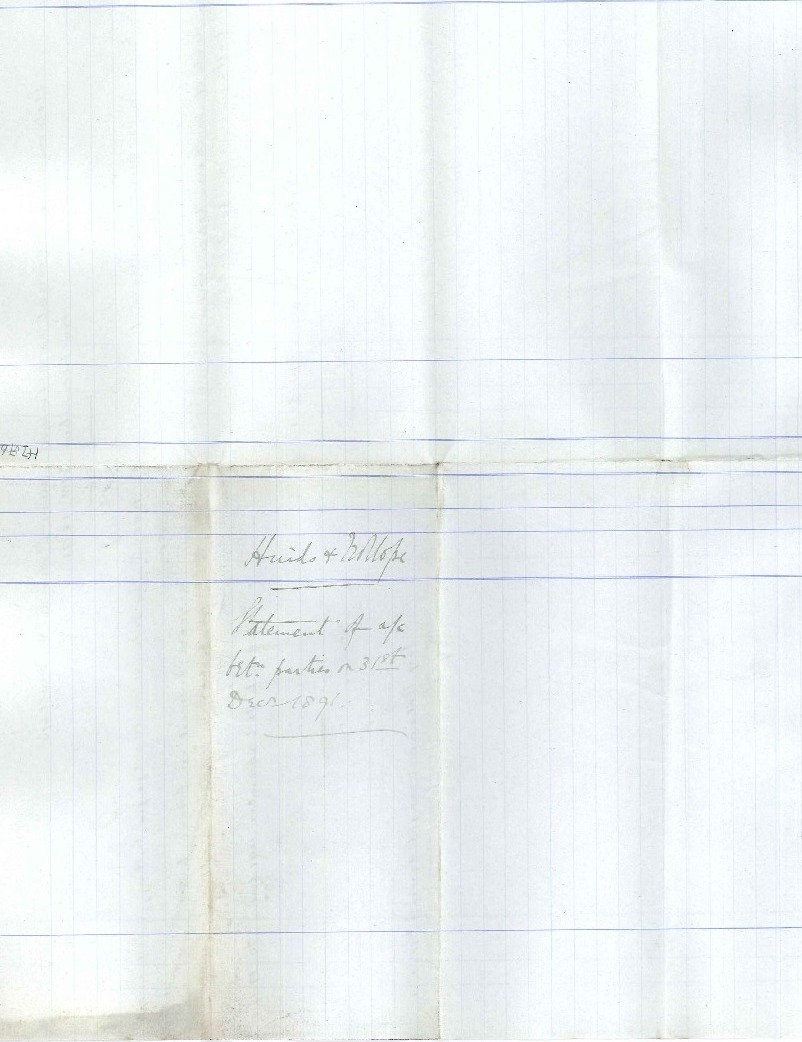 Hinds & Trollope
Statement of a/c
betn parties on 31st
Decr 1891.